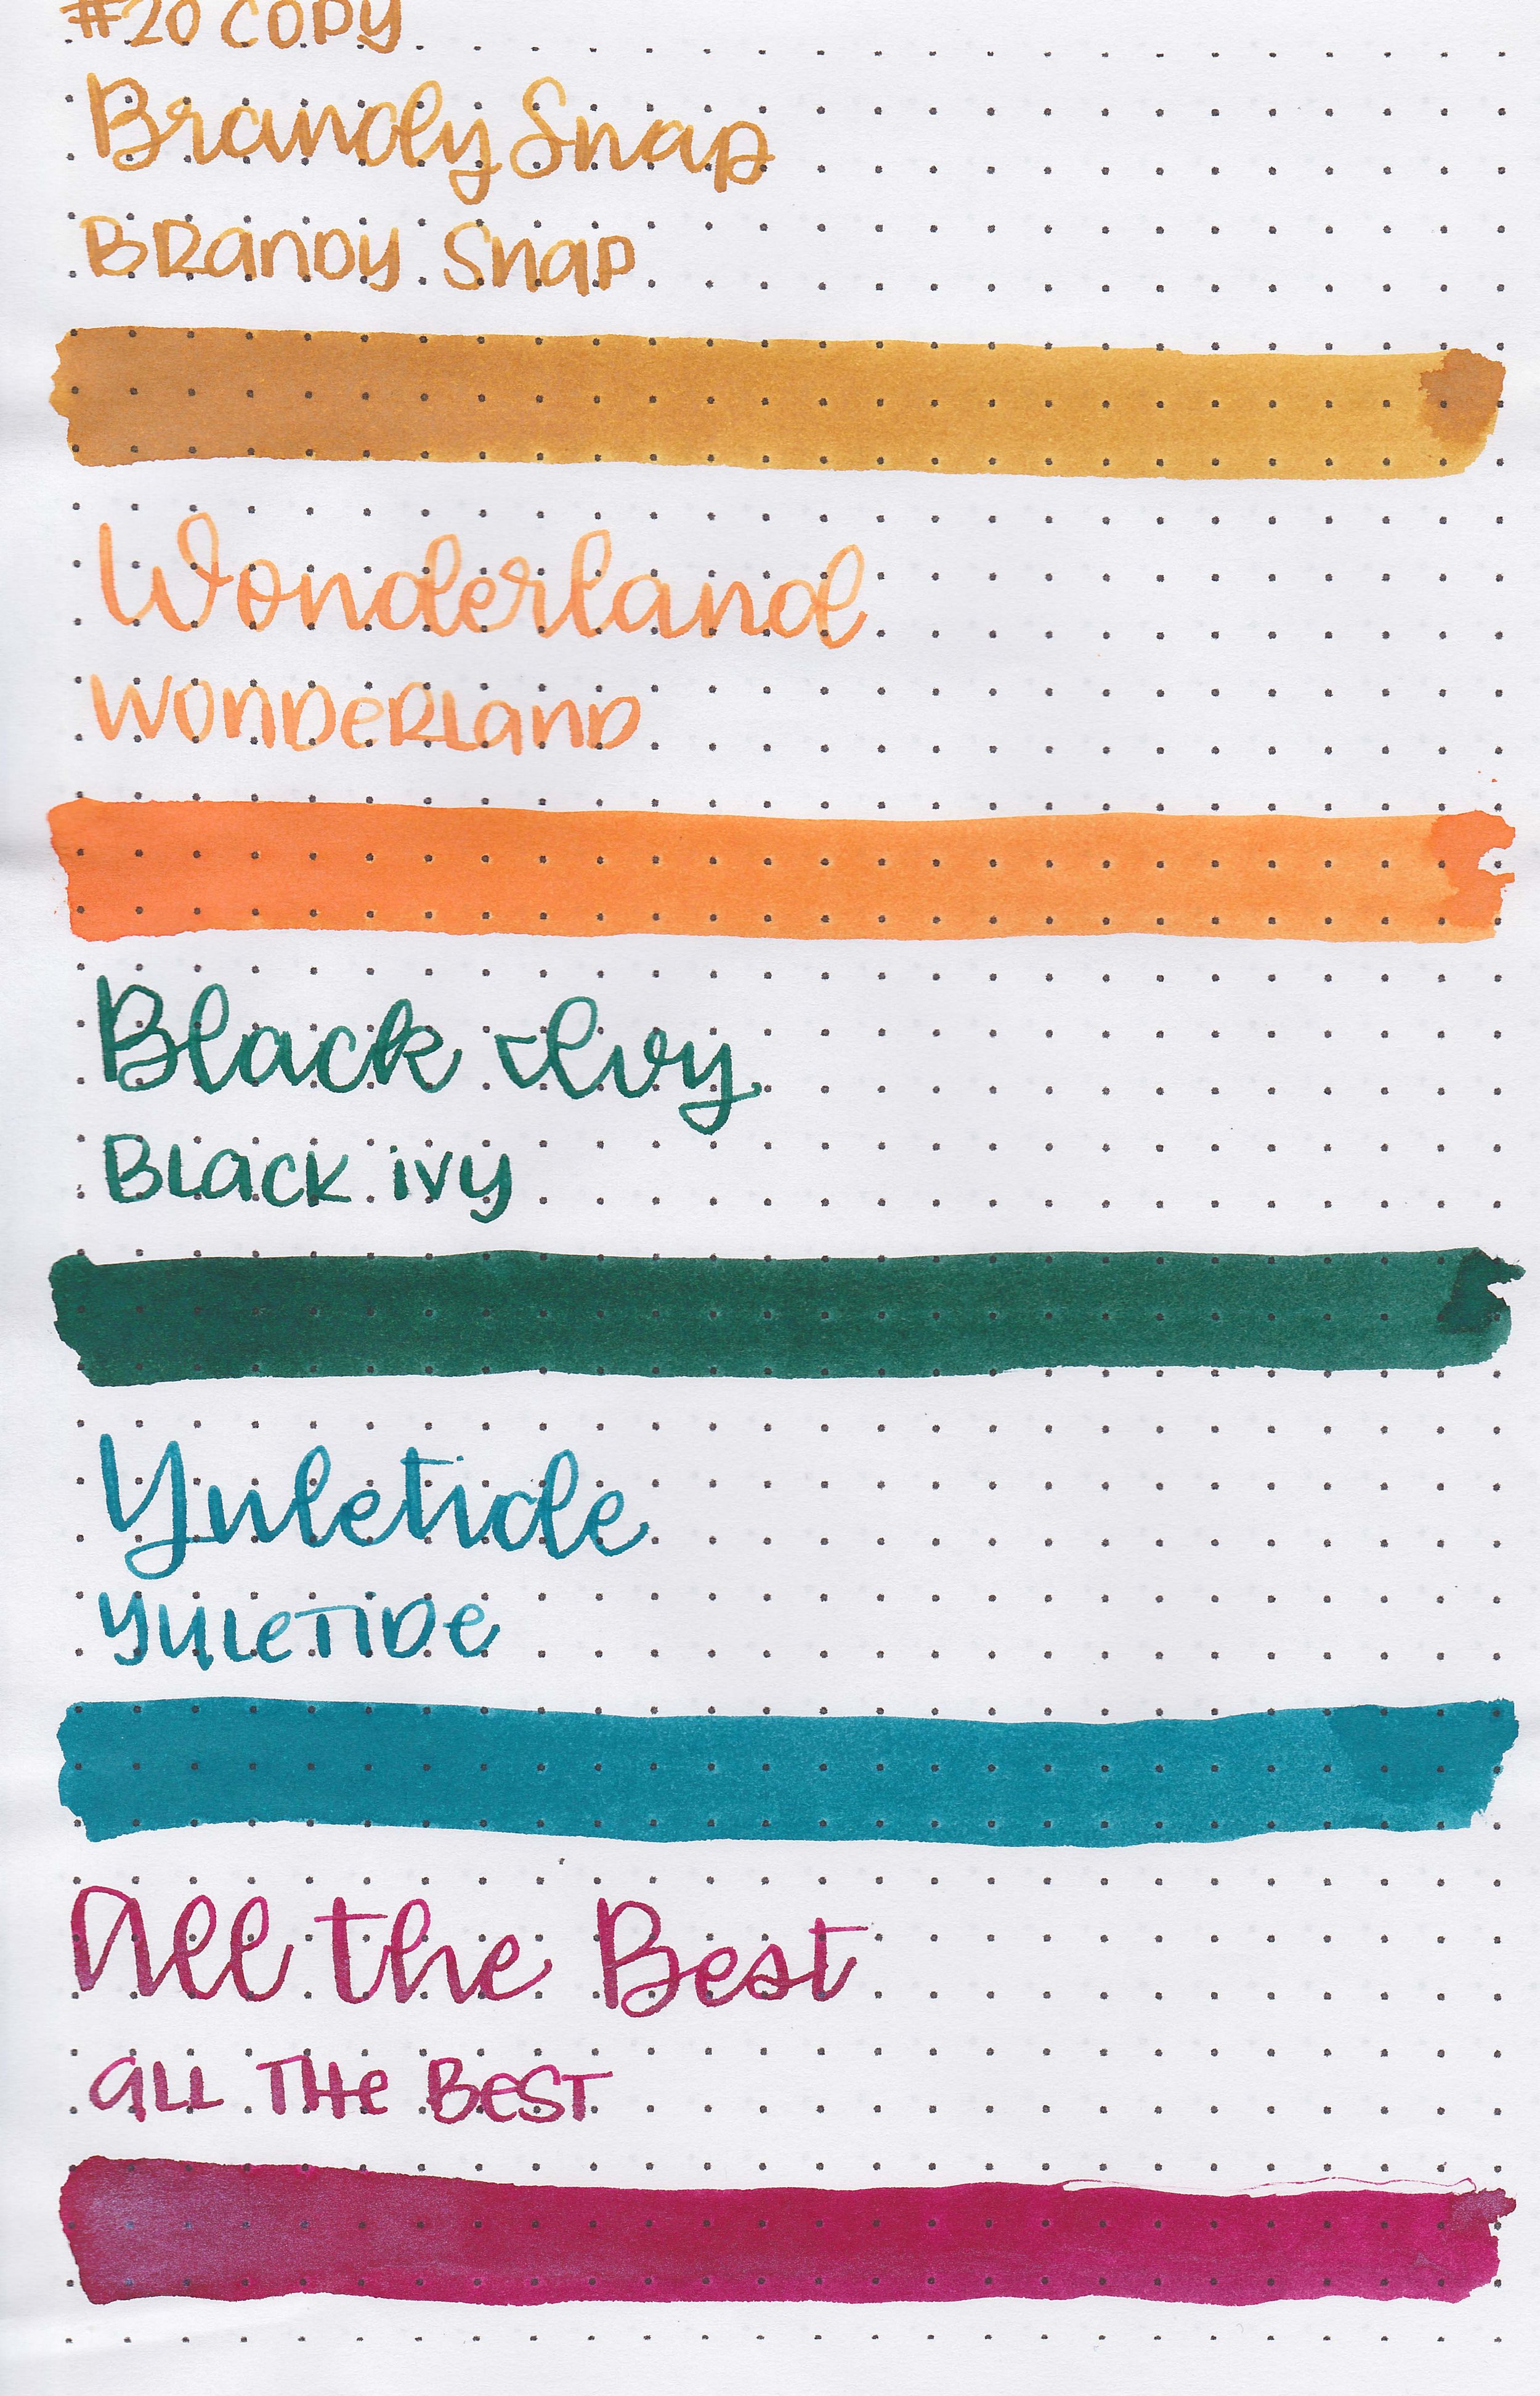 #20 COPY
Brandy Snap
BRanDy Snap
Wonderland
WonDeRLanD
Black Ivy
BLack ivy
Yuletide
YuLeTiDe
All the Best
aLL THe BeST